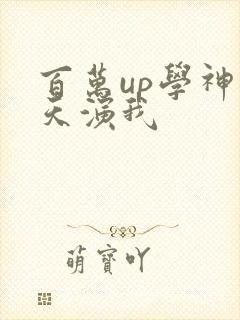 百萬up學神
天演我
萌寶吖